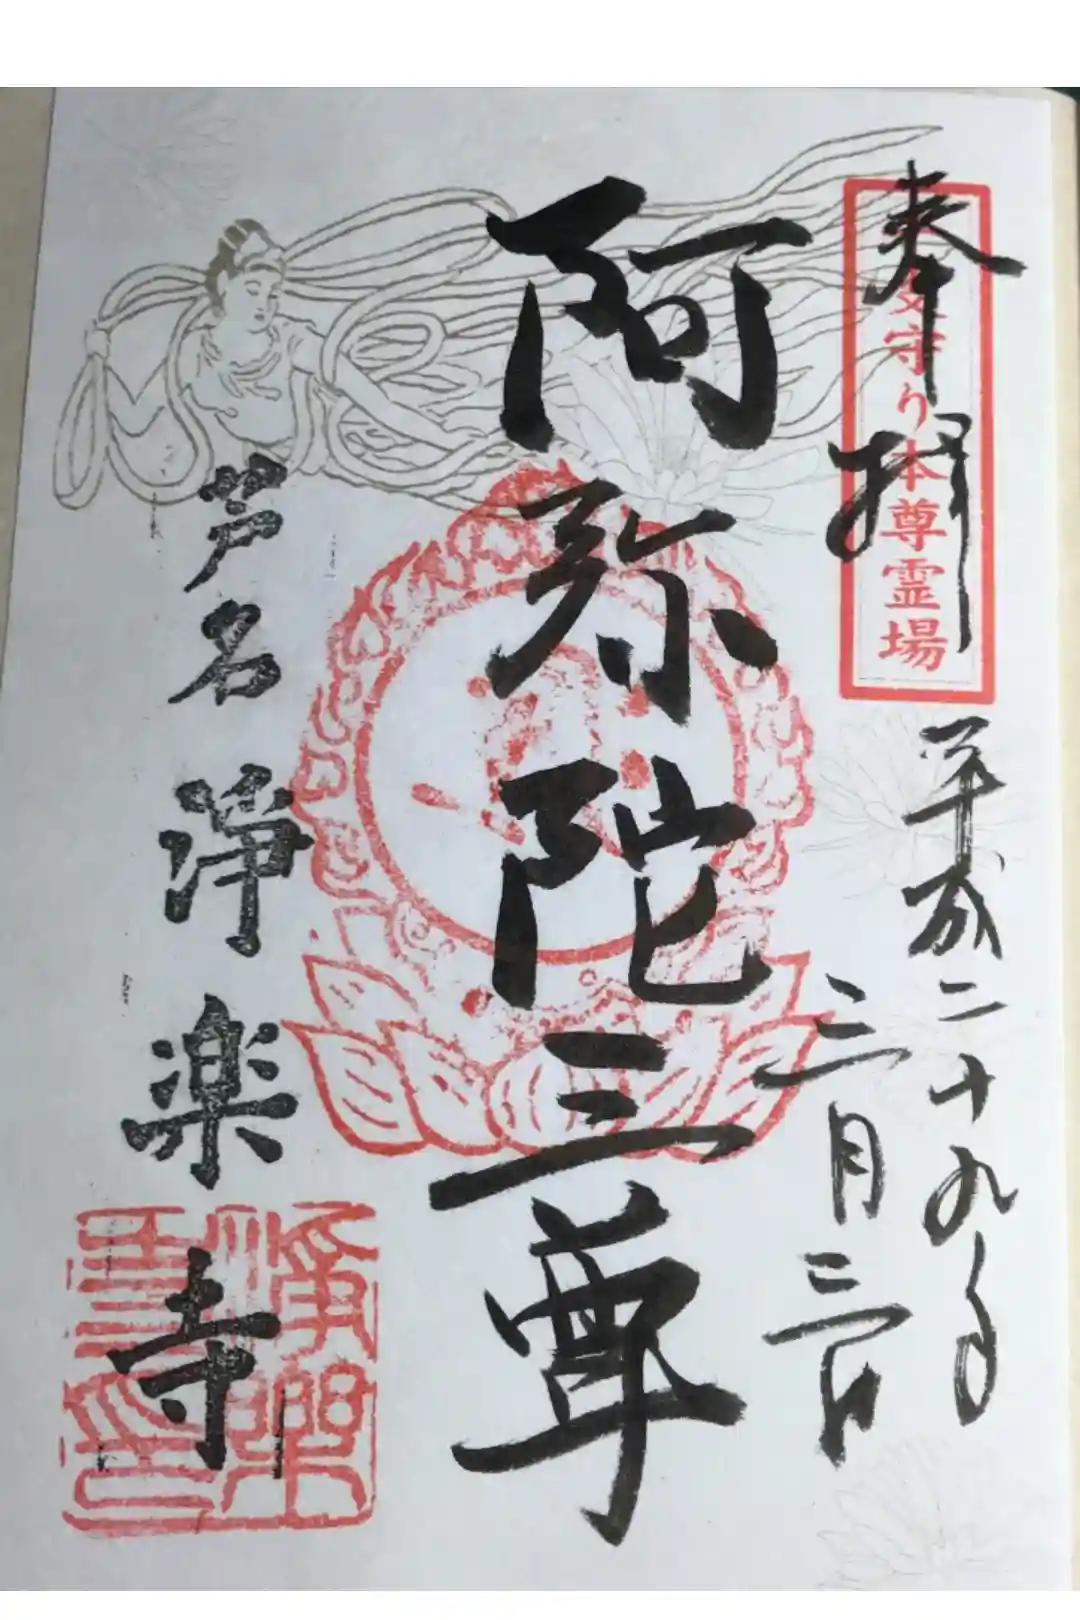 奉拝
守り本尊霊場
平成二十九年
三月三日
阿弥陀三尊
芦名
浄楽寺